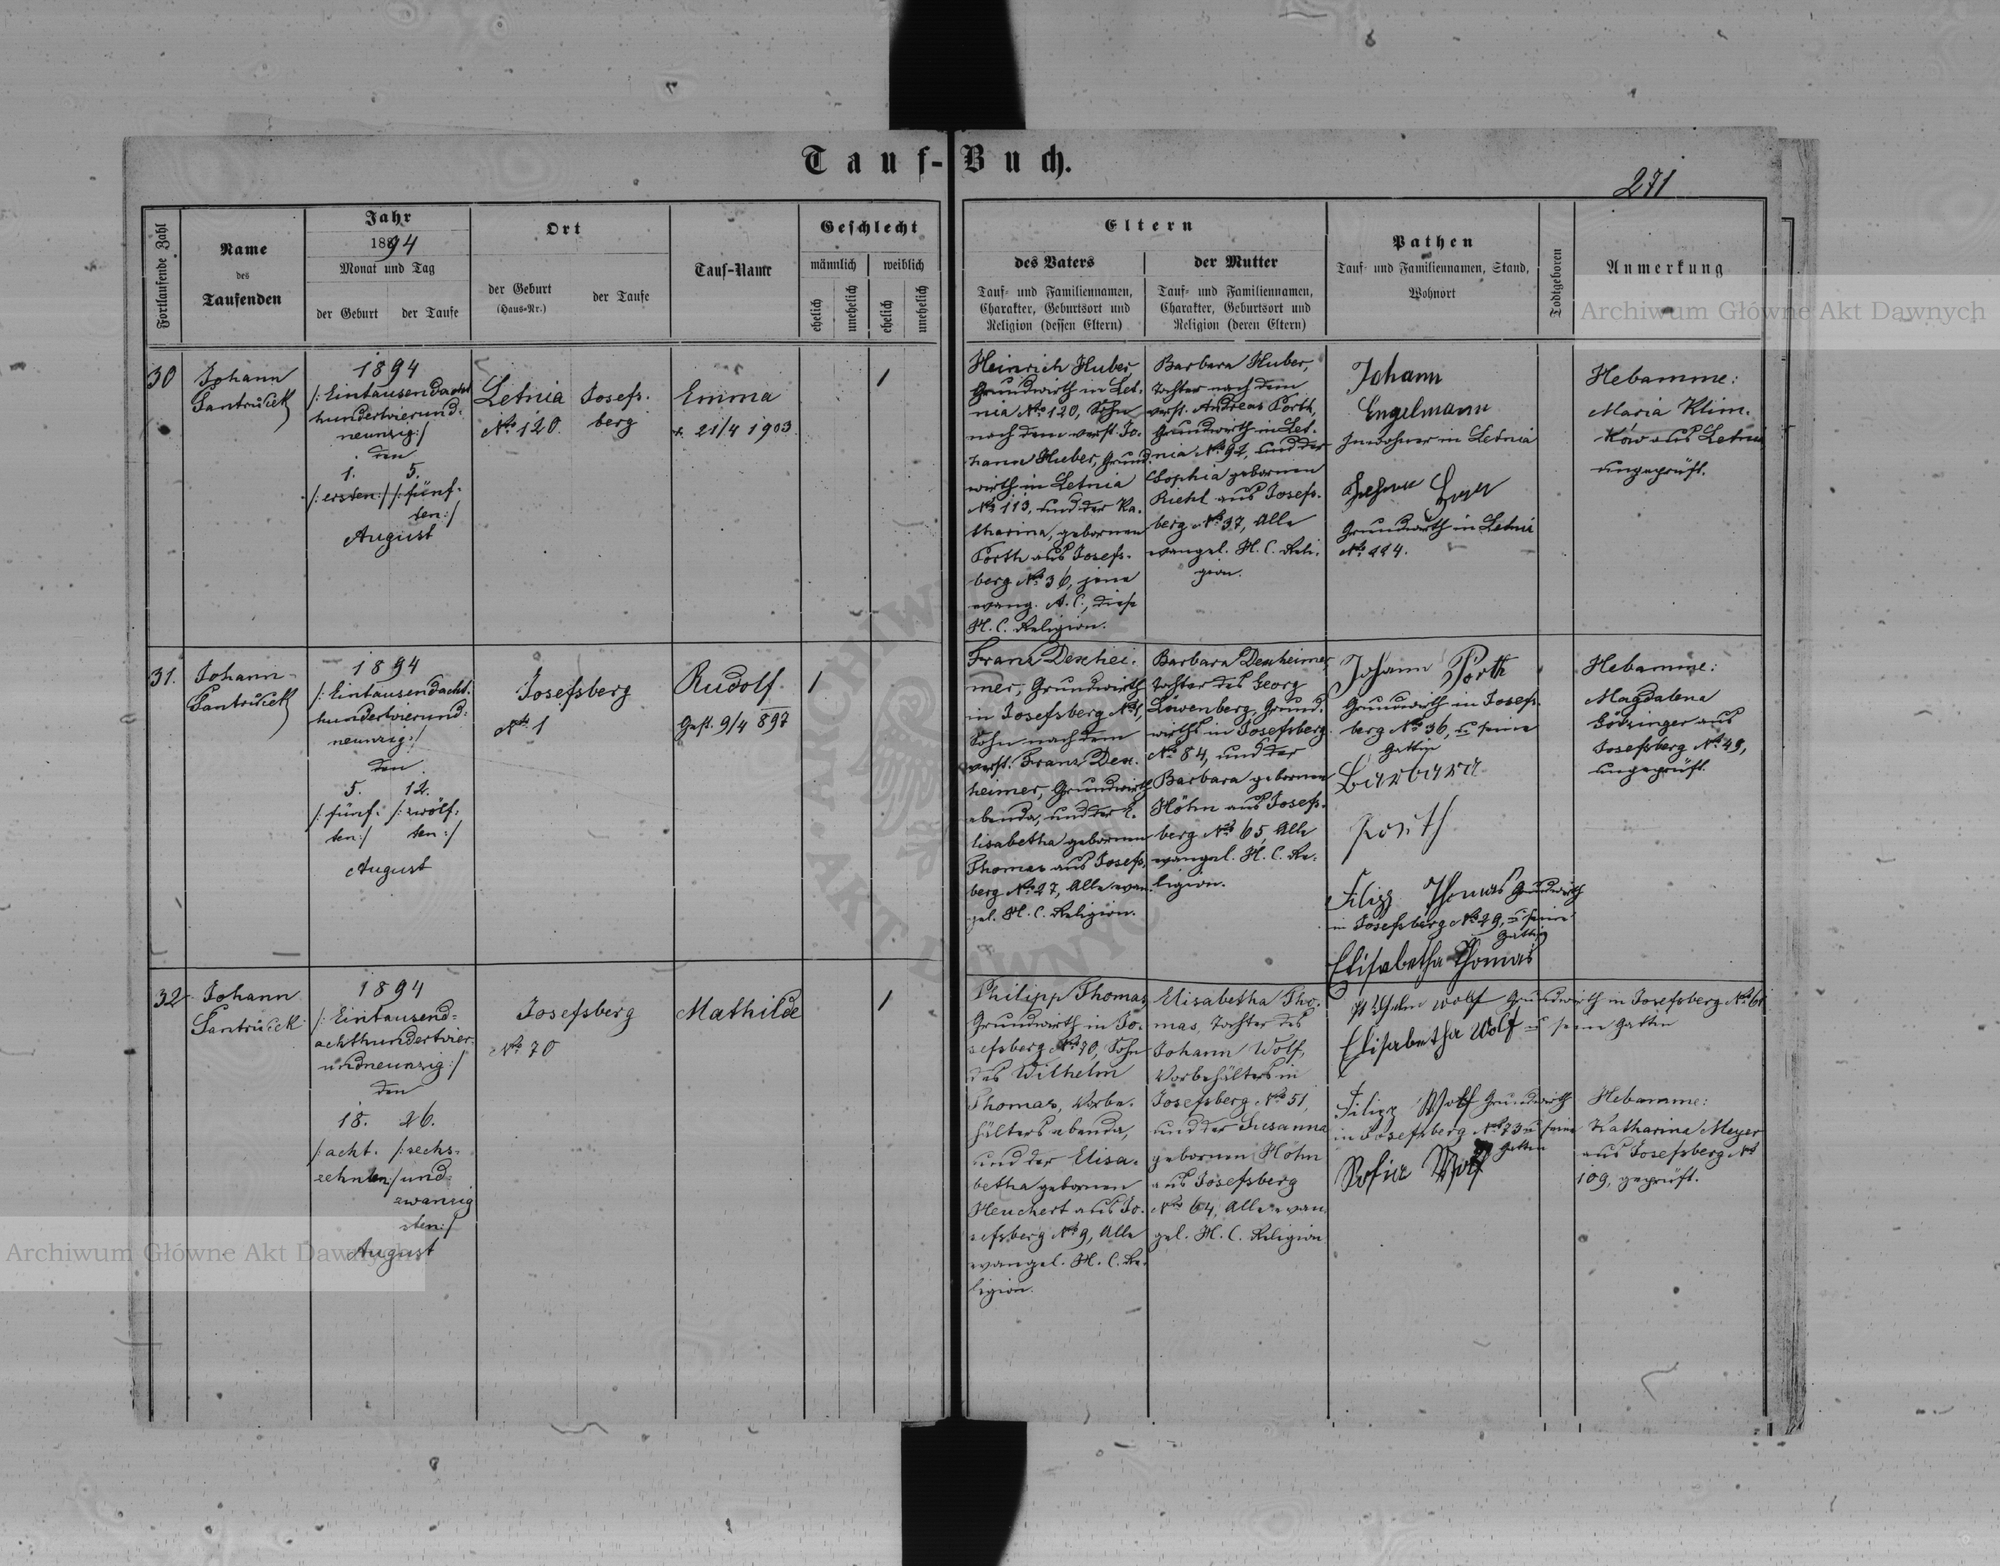 Tauf-Buch.
271
Fortlaufende Zahl
Name
des
Taufenden
Jahr
1894
Monat und Tag
der Geburt
der Taufe
Ort
der Geburt
(Haus-Nr.)
der Taufe
Tauf-Name
Geschlecht
männlich
weiblich
ehelich
unehelich
ehelich
unehelich
Eltern
des Vaters
Tauf- und Familiennamen,
Charakter, Geburtsort und
Religion (dessen Eltern)
der Mutter
Tauf- und Familiennamen,
Charakter, Geburtsort und
Religion (deren Eltern)
Pathen
Tauf- und Familiennamen, Stand,
Wohnort
Todtgeboren
Anmerkung
30
Johann
Santruček
1894
/: Eintausendacht
hundertvierund-
neunzig :/
den
1. 5.
/: ersten :/ /: fünf-
ten :/
August
Letnia
No 120.
Josefs-
berg
Emma
+. 21/4 1903.
1
Heinrich Huber,
Grundwirth in Let-
nia No 120, Sohn
nach dem verst. Jo-
hann Huber, Grund-
wirth in Letnia
No 113, und der Ka-
tharina, gebornen
Porth aus Josefs-
berg No 36, jene
evang. A. C., diese
H. C. Religion.
Barbara Huber,
Tochter nach dem
verst. Andreas Porth,
Grundwirth in Let-
nia No 92, und der
Sophia gebornen
Riehl aus Josefs-
berg No 37, Alle
evangel. H. C. Reli-
gion.
Johann
Engelmann
Inwohner in Letnia
Grundwirth in Letnia
No 114.
Hebamme:
Maria Klim-
ków aus Letnia
ungeprüft.
31.
Johann
Santruček
1894
/: Eintausendacht-
hundertvierund-
neunzig :/
den
5. 12.
/: fünf- /: zwölf-
ten :/ ten :/
August
Josefsberg
No 1
Rudolf
Gest. 9/4 897
1
Franz Dexhei-
mer, Grundwirth
in Josefsberg No 1,
Sohn nach dem
verst. Franz Dex-
heimer, Grundwirth
ebenda, und der E-
lisabetha gebornen
Thomas aus Josefs-
berg No 27, Alle evan-
gel. H. C. Religion.
Barbara Dexheimer
Tochter des Georg
Löwenberg, Grund-
wirths in Josefsberg
No 84, und der
Barbara gebornen
Höhn aus Josefs-
berg No 65, Alle
evangel. H. C. Re-
ligion.
Johann Porth
Grundwirth in Josefs-
berg No 36, u seine
Gattin
Barbara
Porth
Filipp Thomas Grundwirth
in Josefsberg No 29, u seine
Gattin
Elisabetha Thomas
Hebamme:
Magdalena
Götzinger aus
Josefsberg No 49,
ungeprüft.
32
Johann
Santruček
1894
/: Eintausend-
achthundertvier-
undneunzig :/
den
18. 26.
/: acht- /: sechs-
zehnten :/ und-
zwanzig
sten :/
August
Josefsberg
No 70
Mathilde
1
Philipp Thomas,
Grundwirth in Jo-
sefsberg No 70, Sohn
des Wilhelm
Thomas, Vorbe-
hälters ebenda,
und der Elisa-
betha gebornen
Heuchert aus Jo-
sefsberg No 9, Alle
evangel. H. C. Re-
ligion.
Elisabetha Tho-
mas, Tochter des
Johann Wolf,
Vorbehälters in
Josefsberg No 51,
und der Susanna
gebornen Höhn
aus Josefsberg
No 64, Alle evan-
gel. H. C. Religion
Wilhelm Wolf Grundwirth in Josefsberg No 61
Elisabetha Wolf u seine Gattin
Filipp Wolf Grundwirth
in Josefsberg No 73 u seine
Gattin
Sofia Wolf
Hebamme:
Katharina Meyer
aus Josefsberg No
109, geprüft.
Archiwum Główne Akt Dawnych
Archiwum Główne Akt Dawnych
ARCHIWUM
AKT DAWNYCH